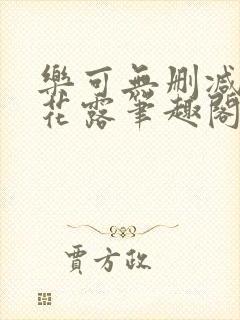 樂可無刪減
花露筆趣閣
賈方政